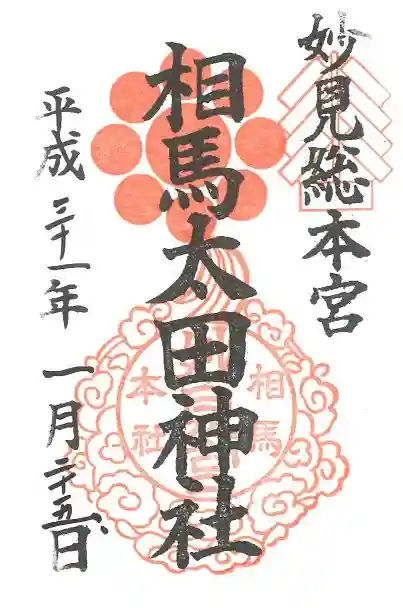 妙見総本宮
相馬太田神社
平成三十一年一月二十五日
相馬
本社